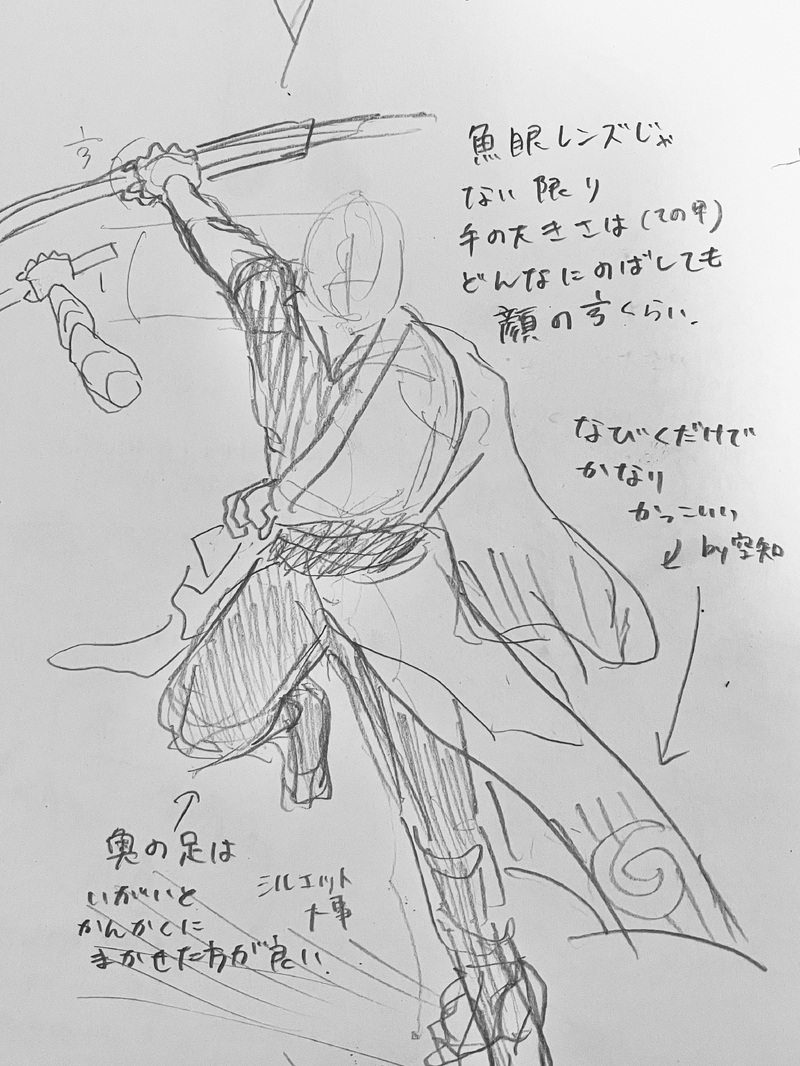 1/3
魚眼レンズじゃ
ない限り
手の大きさは(ての甲)
どんなにのばしても
顔の1/3くらい.
なびくだけで
かなり
かっこいい
by空知
奥の足は
いがいと
かんかくに
まかせた方が良い.
シルエット
大事